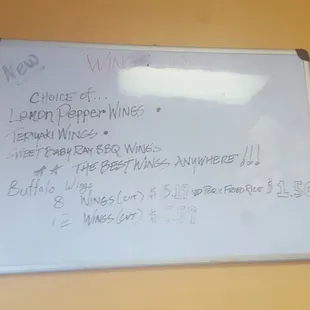 New
WINGS
CHOICE of...
Lemon Pepper WINGS •
TERIYAKI WINGS •
SWEET BABY RAY BBQ WINGS
THE BEST WINGS ANYWHERE!!!
Buffalo Wings
8 WINGS (CUT) $ 5 PORK FRIED RICE $1.50
12 WINGS (CUT) $